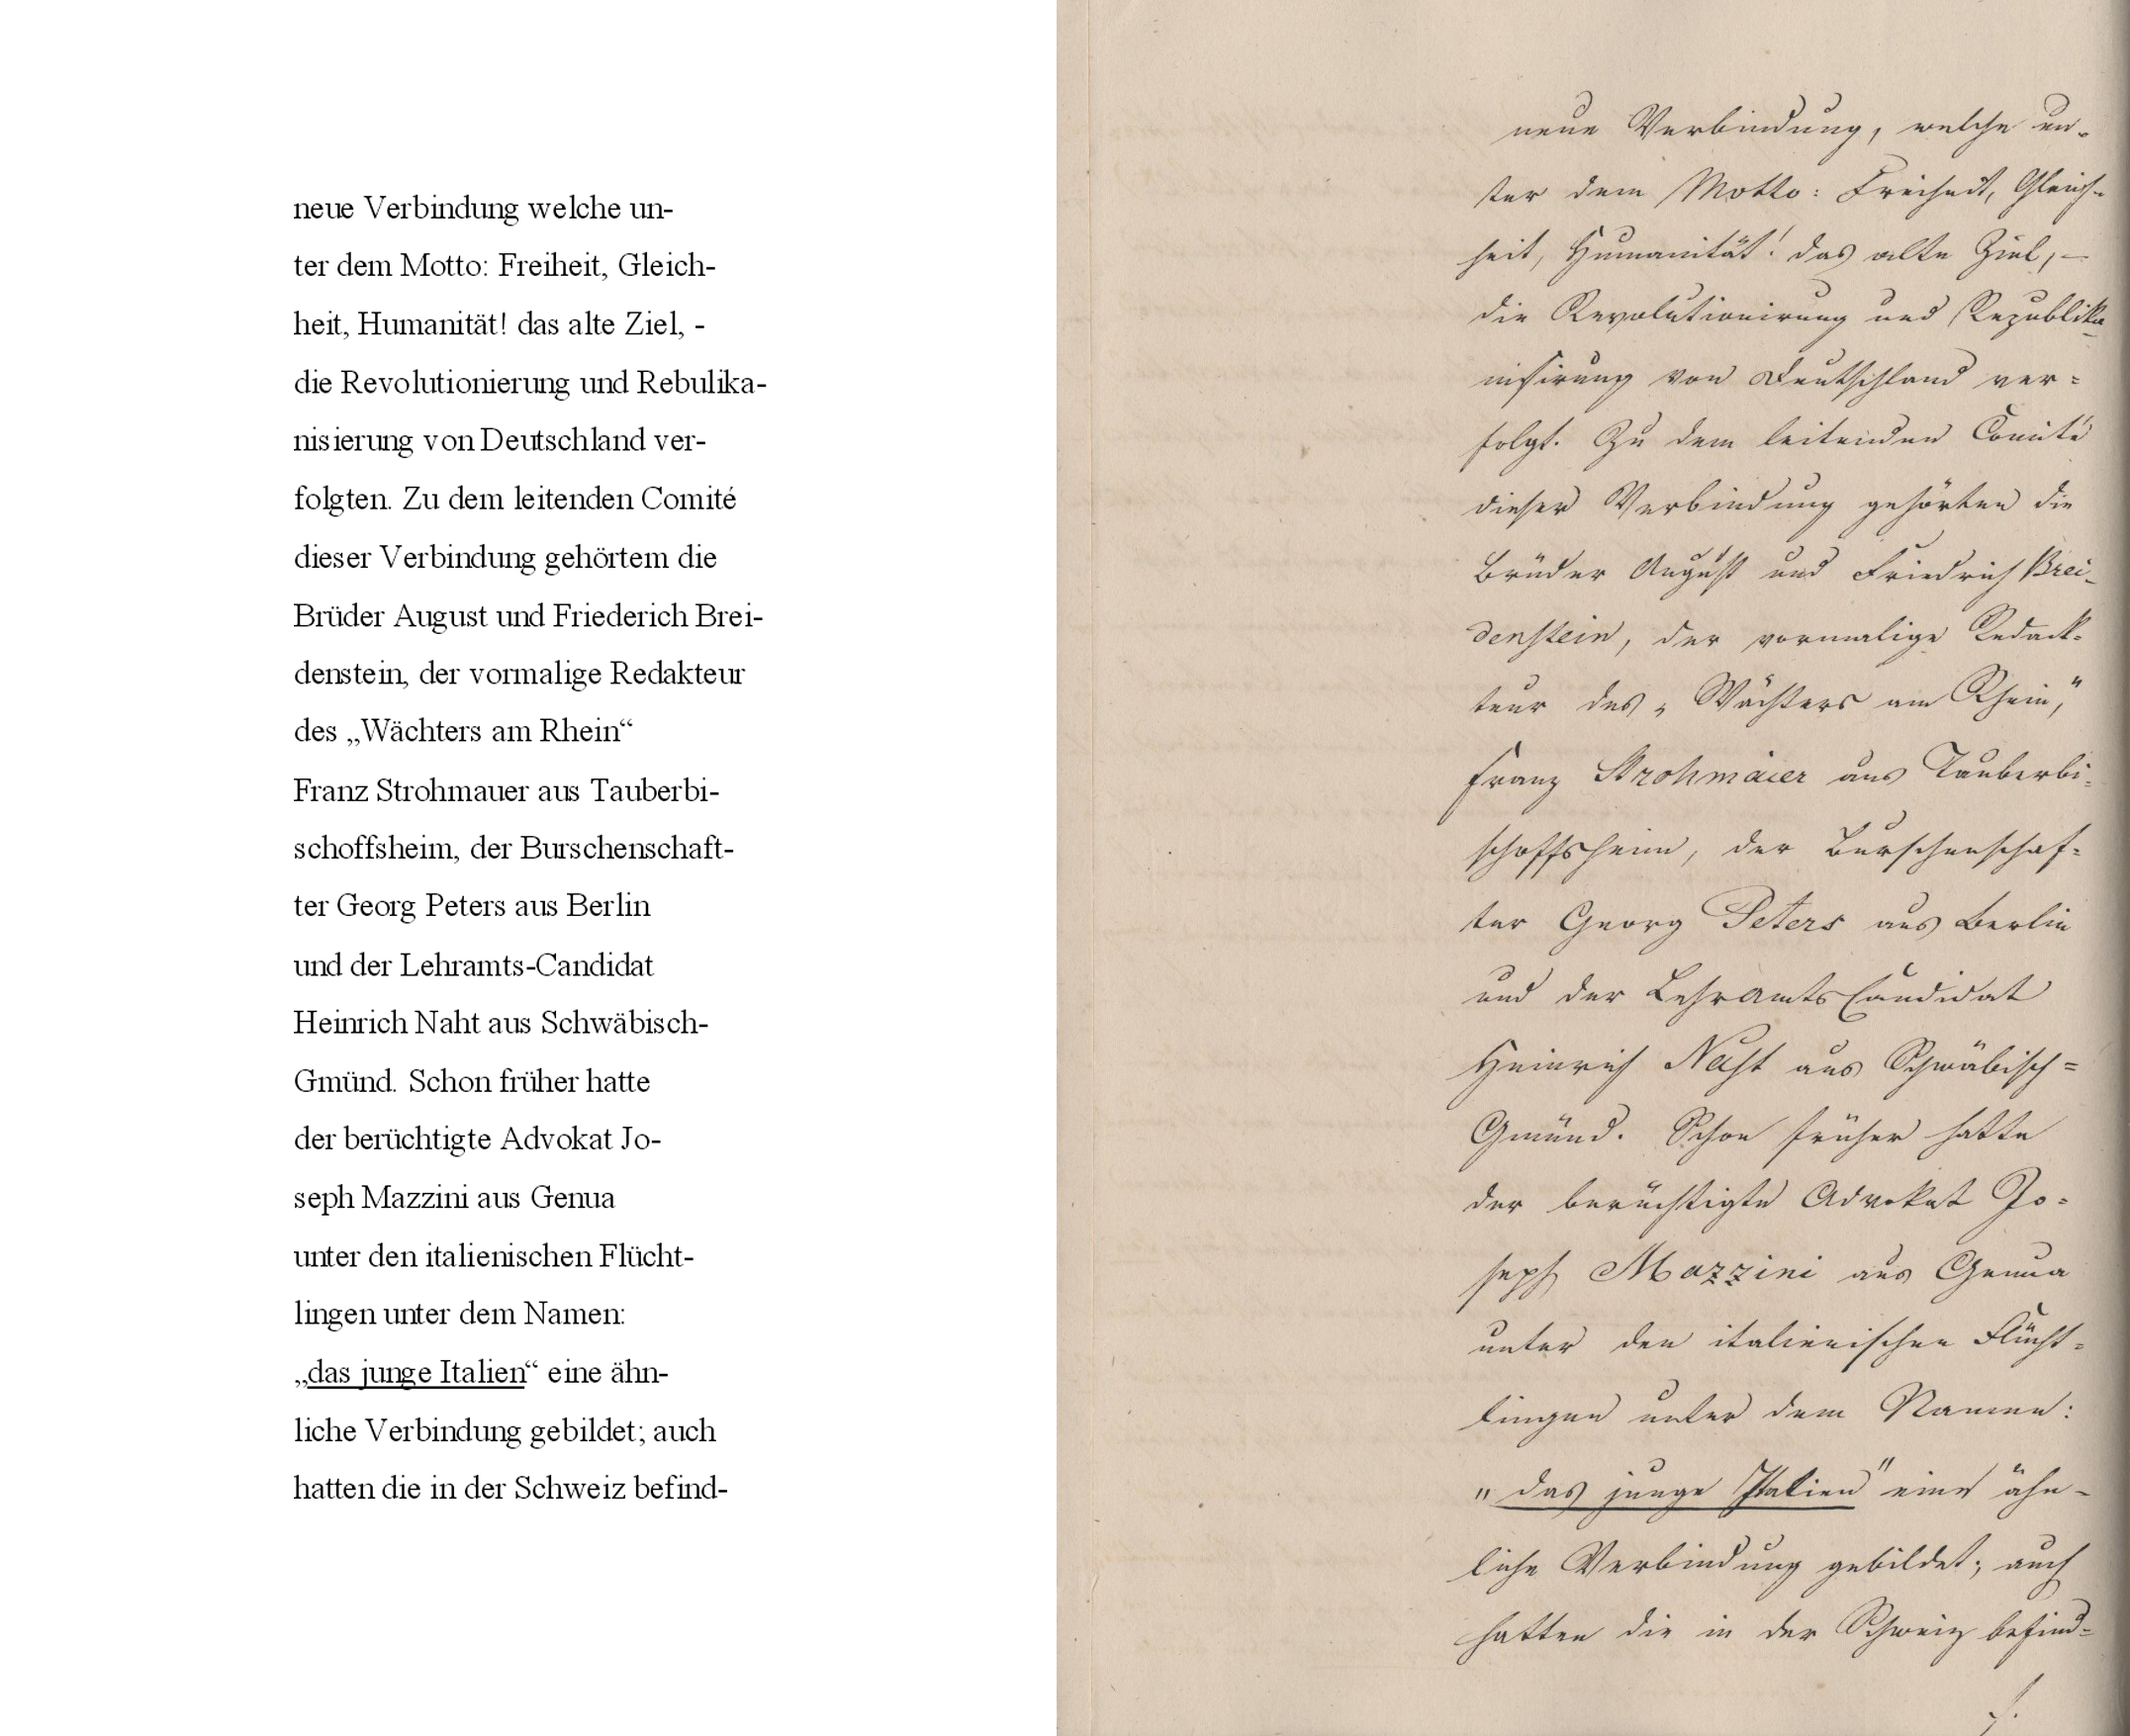 neue Verbindung welche un-
ter dem Motto: Freiheit, Gleich-
heit, Humanität! das alte Ziel, -
die Revolutionierung und Rebulika-
nisierung von Deutschland ver-
folgten. Zu dem leitenden Comité
dieser Verbindung gehörtem die
Brüder August und Friederich Brei-
denstein, der vormalige Redakteur
des „Wächters am Rhein“
Franz Strohmauer aus Tauberbi-
schoffsheim, der Burschenschaft-
ter Georg Peters aus Berlin
und der Lehramts-Candidat
Heinrich Naht aus Schwäbisch-
Gmünd. Schon früher hatte
der berüchtigte Advokat Jo-
seph Mazzini aus Genua
unter den italienischen Flücht-
lingen unter dem Namen:
„das junge Italien“ eine ähn-
liche Verbindung gebildet; auch
hatten die in der Schweiz befind-
neue Verbindung, welche un-
ter dem Motto: Freiheit, Gleich-
heit, Humanität! das alte Ziel, –
die Revolutionirung und Republika-
nisirung von Deutschland ver=
folgt. Zu dem leitenden Comité
dieser Verbindung gehörten die
Brüder August und Friedrich Brei-
denstein, der vormalige Redack-
teur des „Wächters am Rhein,"
Franz Strohmaier aus Tauberbi-
schoffsheim, der Burschenschaf=
ter Georg Peters aus Berlin
und der LehramtsCandidat
Heinrich Nast aus Schwäbisch=
Gmünd. Schon früher hatte
der berüchtigte Advokat Jo=
seph Mazzini aus Genua
unter den italienischen Flücht=
lingen unter dem Namen:
"das junge Italien" eine ähn-
liche Verbindung gebildet; auch
hatten die in der Schweiz befind=